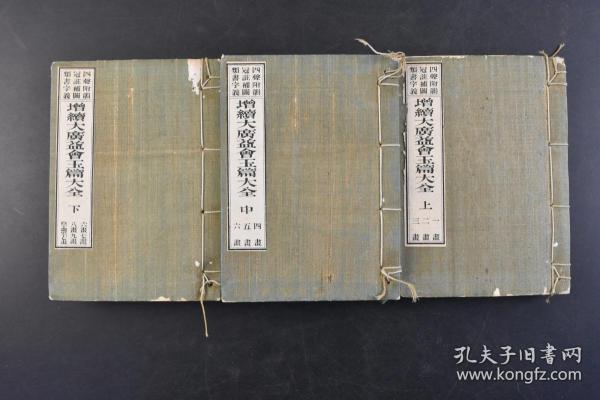 四聲附韻
冠註補闕
類書字義
增續大廣益會玉篇大全
上
一畫
二畫
三畫
四聲附韻
冠註補闕
類書字義
增續大廣益會玉篇大全
中
四畫
五畫
六畫
四聲附韻
冠註補闕
類書字義
增續大廣益會玉篇大全
下
六畫七畫
八畫九畫
孔夫子旧书网
www.kongfz.com